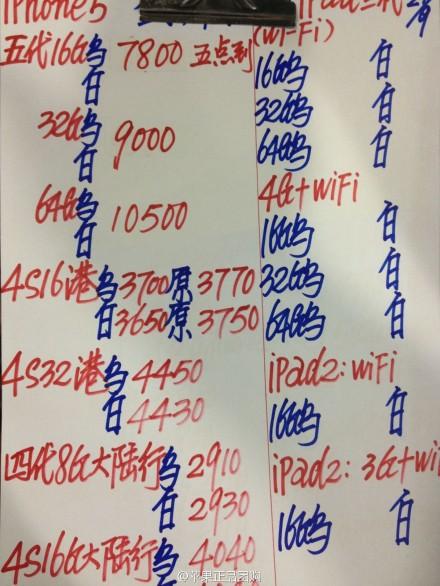 iPhone5
五代16G乌 7800 五点到
白
32G乌
9000
白
64G乌
10500
白
4S16港乌3700原3770
白3650原3750
4S32港乌4450
白4430
四代8G大陆行乌2910
白2930
4S16G大陆行乌4040
iPad三代
(Wi-Fi)
16G乌 白
32G乌 白
64G乌 白
4G+WiFi
16G乌 白
32G乌 白
64G乌 白
iPad2:WiFi
16G乌 白
iPad2:3G+Wi
16G乌 白
@苹果正品团购